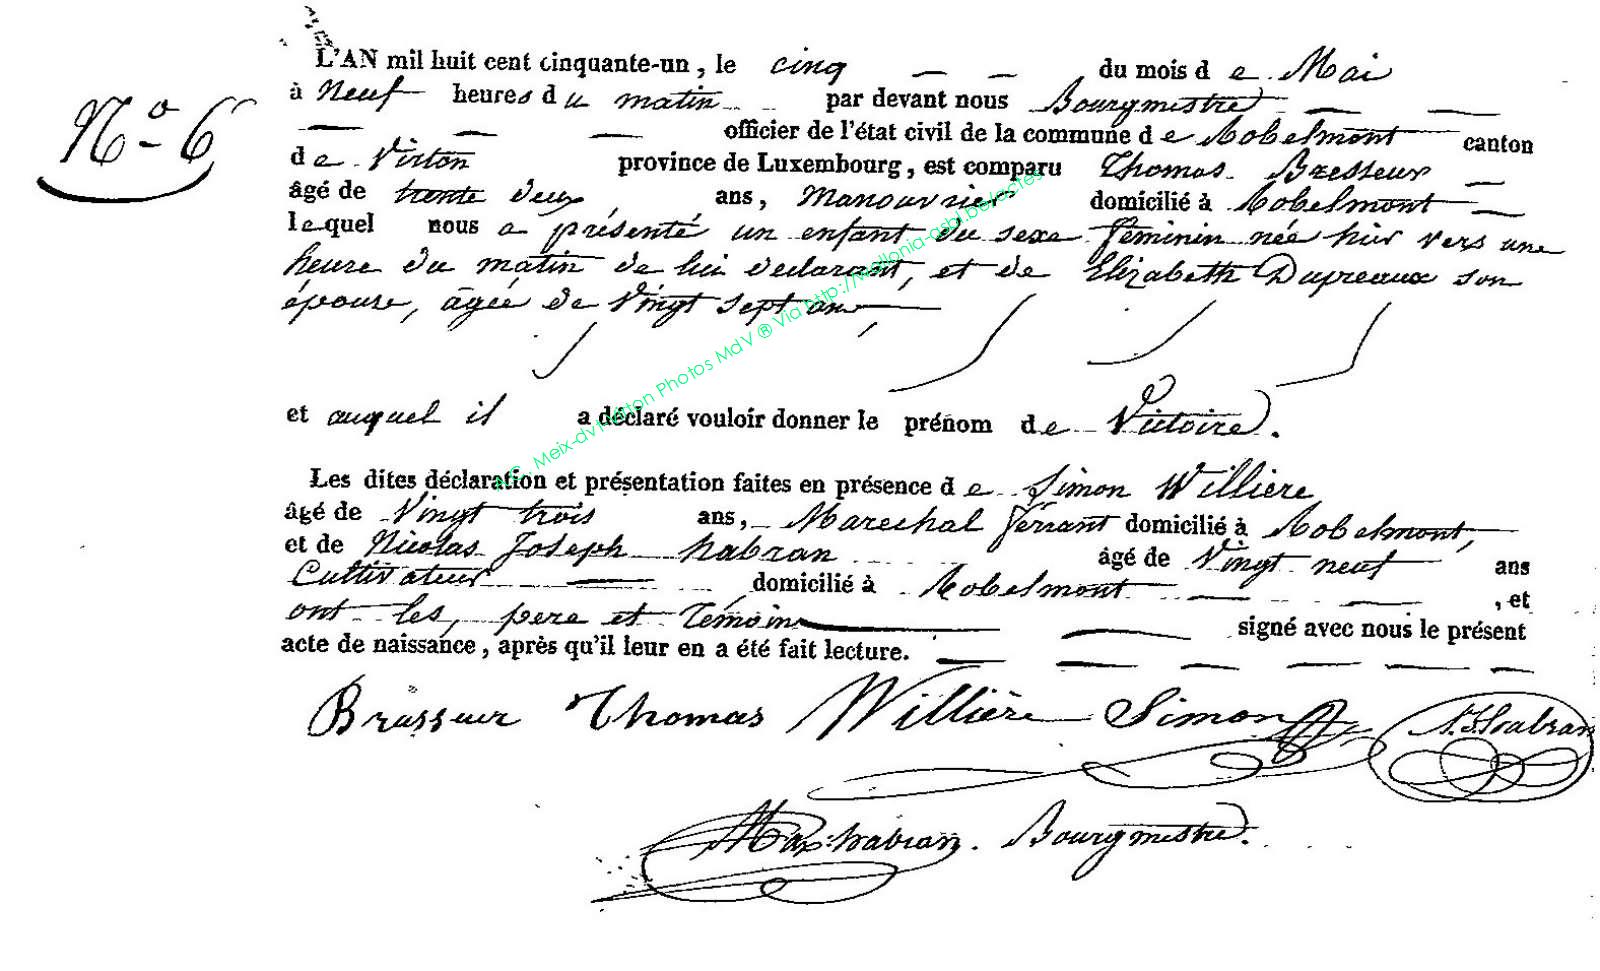 L'AN mil huit cent cinquante-un, le cinq du mois de Mai
N° 6
à Neuf heures du matin par devant nous Bourgmestre
officier de l'état civil de la commune de Robelmont canton
de Virton province de Luxembourg, est comparu Thomas Bresseur
âgé de trente deux ans, Manouvrier domicilié à Robelmont
lequel nous a présenté un enfant du sexe féminin née hier vers une
heure du matin de lui declarant, et de Elizabeth Dupreaux son
épouse, âgée de Vingt sept ans,
et auquel il a déclaré vouloir donner le prénom de Victoire.
Les dites déclaration et présentation faites en présence de Simon Willière
âgé de Vingt trois ans, Marechal ferrant domicilié à Robelmont,
et de Nicolas Joseph habran âgé de Vingt neuf ans
Cultivateur domicilié à Robelmont, et
ont les, pere et Témoins signé avec nous le présent
acte de naissance, après qu'il leur en a été fait lecture.
Brasseur Thomas Willière Simon N. J. Habran
Max. habran. Bourgmestre.
A.C. Meix-dvt-Virton Photos MdV ® Via http://wallonia-asbl.be/actes